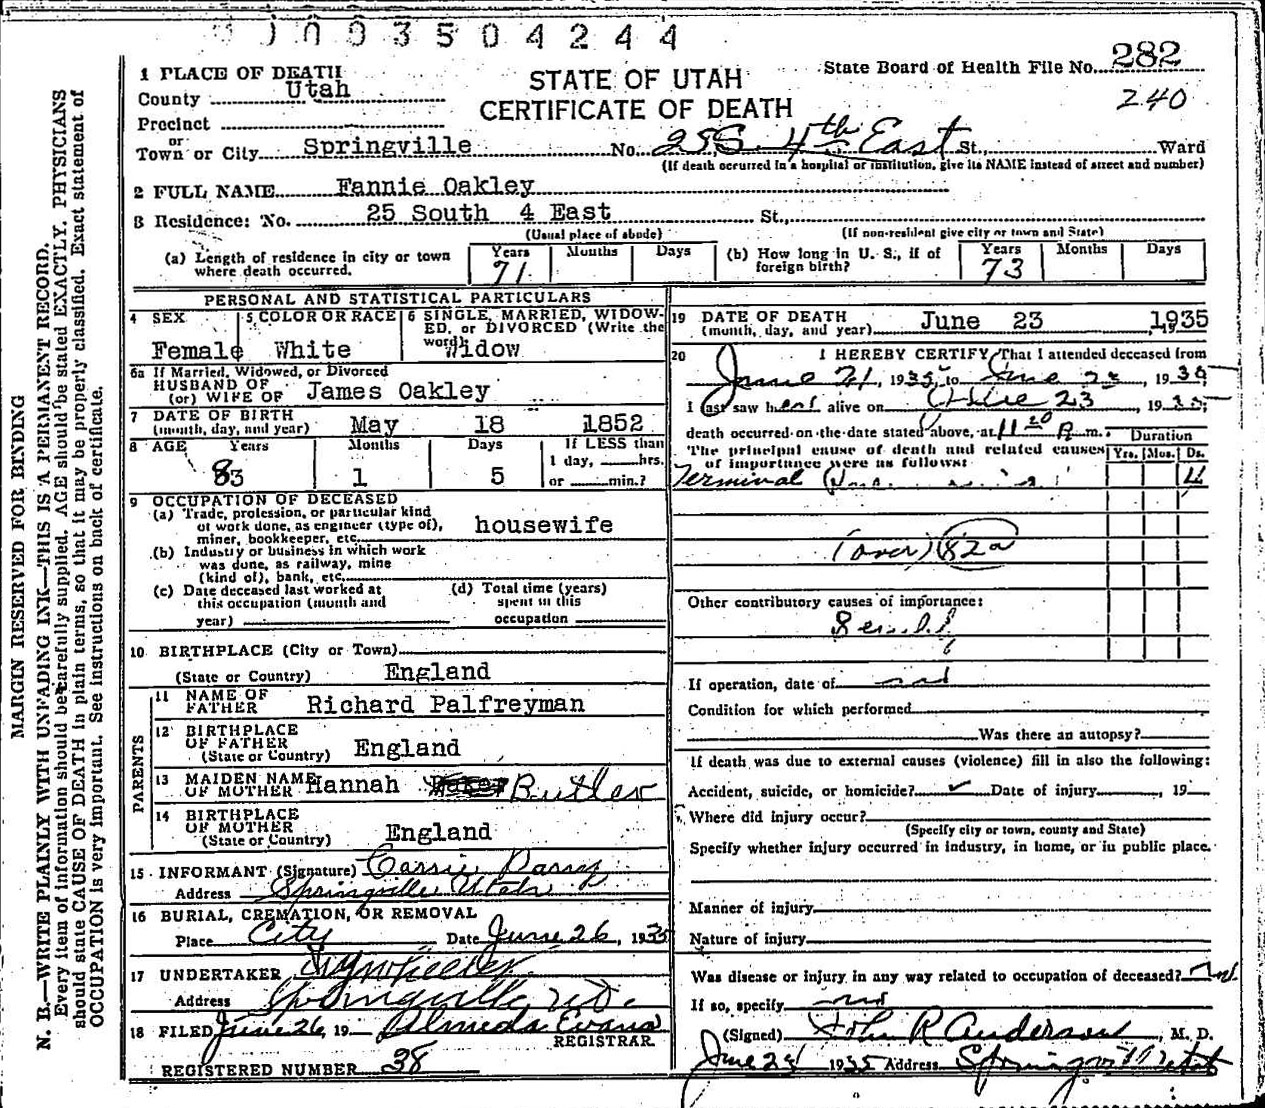 0003504244
282
State Board of Health File No.
240
1 PLACE OF DEATH
STATE OF UTAH
County Utah
CERTIFICATE OF DEATH
Precinct
or
Town or City Springville No. 25 S. 4th East St., Ward
(If death occurred in a hospital or institution, give its NAME instead of street and number)
2 FULL NAME Fannie Oakley
3 Residence: No. 25 South 4 East St.,
(Usual place of abode) (If non-resident give city or town and State)
(a) Length of residence in city or town where death occurred. Years 71 Months Days
(b) How long in U. S., if of foreign birth? Years 73 Months Days
PERSONAL AND STATISTICAL PARTICULARS
4 SEX Female
5 COLOR OR RACE White
6 SINGLE, MARRIED, WIDOWED, or DIVORCED (Write the word) Widow
6a If Married, Widowed, or Divorced
HUSBAND OF
(or) WIFE OF James Oakley
7 DATE OF BIRTH
(month, day, and year) May 18 1852
8 AGE Years 83 Months 1 Days 5 If LESS than
1 day, hrs.
or min.?
9 OCCUPATION OF DECEASED
(a) Trade, profession, or particular kind
of work done, as engineer (type of),
miner, bookkeeper, etc. housewife
(b) Industry or business in which work
was done, as railway, mine
(kind of), bank, etc.
(c) Date deceased last worked at
this occupation (month and
year)
(d) Total time (years)
spent in this
occupation
10 BIRTHPLACE (City or Town)
(State or Country) England
PARENTS
11 NAME OF
FATHER Richard Palfreyman
12 BIRTHPLACE
OF FATHER
(State or Country) England
13 MAIDEN NAME
OF MOTHER Hannah Butler
14 BIRTHPLACE
OF MOTHER
(State or Country) England
15 INFORMANT (Signature) Carrie
Address Springville Utah
16 BURIAL, CREMATION, OR REMOVAL
Place City Date June 26, 1935
17 UNDERTAKER
Address Springville
18 FILED June 26, 19 Almeda Evans
REGISTRAR.
REGISTERED NUMBER 38
19 DATE OF DEATH
(month, day, and year) June 23 1935
20 I HEREBY CERTIFY, That I attended deceased from
June 21, 1935, to June 23, 1935
I last saw her alive on June 23, 1935,
death occurred on the date stated above, at 11 20 m. Duration
The principal cause of death and related causes
of importance were as follows: Yrs. Mos. Ds.
Terminal
(over) 82a
Other contributory causes of importance:
If operation, date of
Condition for which performed
Was there an autopsy?
If death was due to external causes (violence) fill in also the following:
Accident, suicide, or homicide? Date of injury , 19
Where did injury occur?
(Specify city or town, county and State)
Specify whether injury occurred in industry, in home, or in public place.
Manner of injury
Nature of injury
Was disease or injury in any way related to occupation of deceased?
If so, specify
(Signed) John R Anderson, M. D.
June 1935 Address Springville Utah
MARGIN RESERVED FOR BINDING
N. B.—WRITE PLAINLY WITH UNFADING INK—THIS IS A PERMANENT RECORD.
Every item of information should be carefully supplied. AGE should be stated EXACTLY. PHYSICIANS
should state CAUSE OF DEATH in plain terms, so that it may be properly classified. Exact statement of
OCCUPATION is very important. See instructions on back of certificate.